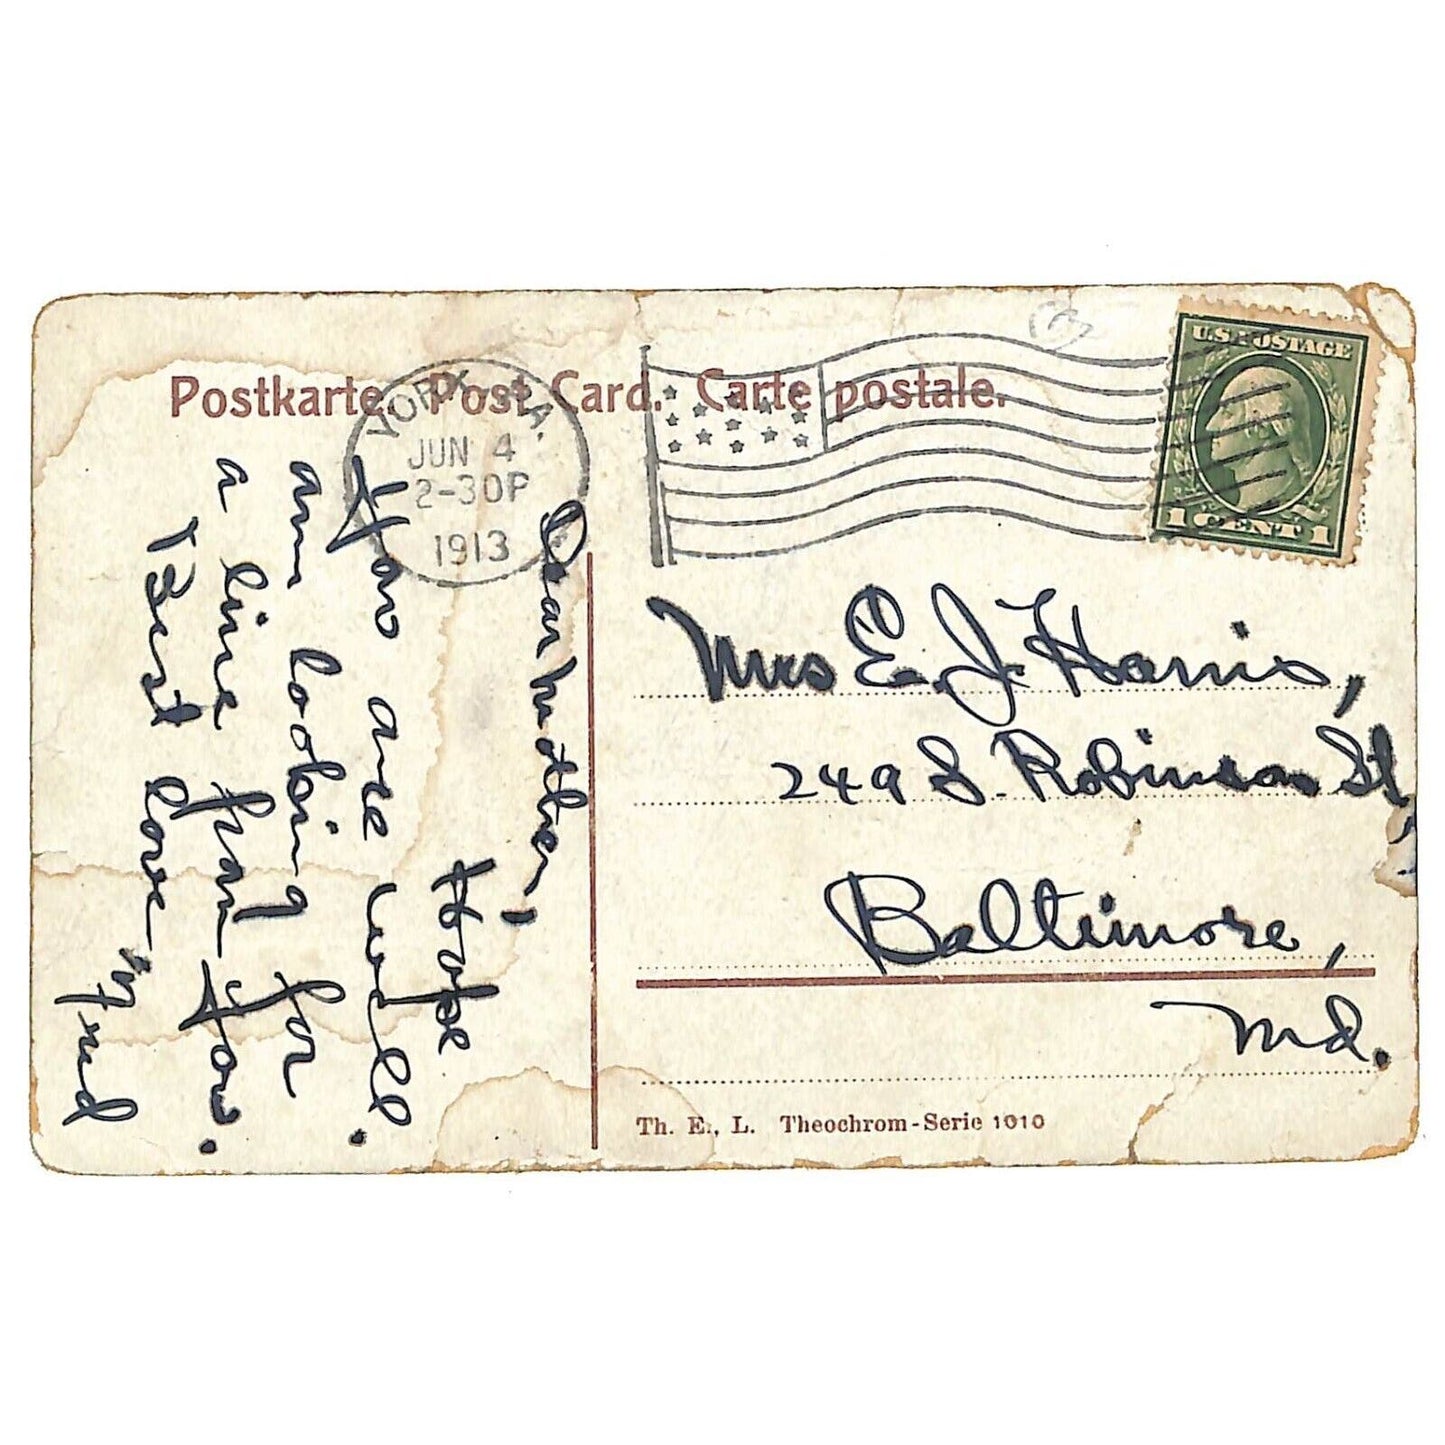 Postkarte. Post Card. Carte postale.
YORK, PA.
JUN 4
2-30P
1913
U.S. POSTAGE
1 CENT 1
Dear Mother,
Hope
you are well.
am looking for
a line from you.
Best love
Mrs E. J. Harris,
249 S. Robinson St.
Baltimore,
Md.
Th. E., L. Theochrom-Serie 1010